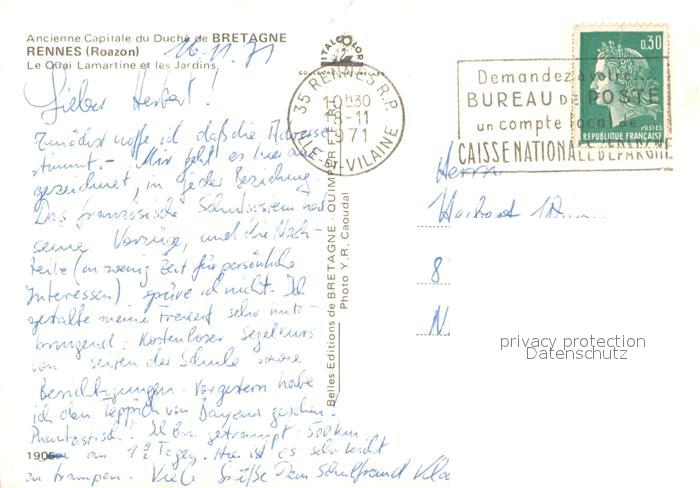 Ancienne Capitale du Duché de BRETAGNE
RENNES (Roazon)
Le Quai Lamartine et les Jardins
16.11.71
Lieber Herbert!
Zunächst hoffe ich, daß die Adresse
stimmt. - Mir geht es hier aus-
gezeichnet, in jeder Beziehung.
Das französische Schulsystem hat
seine Vorzüge, und die Nach-
teile (zu wenig Zeit für persönliche
Interessen) spüre ich nicht. Ich
gestalte meine Freizeit sehr nutz-
bringend: Kostenloser Segelkurs
von seiten der Schule sowie
Besichtigungen. Vorgestern habe
ich den Teppich von Bayeux gesehen.
Phantastisch! Ich bin getrampt: 500 km
an 1½ Tagen. Hier ist es sehr leicht
zu trampen. Viele Grüße Dein Schulfreund
1906
ITALCOLOR
35 RENNES R.P.
10H30
18-11
1971
ILLE-ET-VILAINE
Belles Editions de BRETAGNE - QUIMPER
Photo Y.R. Caoudal
Demandez à votre
BUREAU DE POSTE
un compte local de
CAISSE NATIONALE D'EPARGNE
0,30
POSTES
REPUBLIQUE FRANÇAISE
Herrn
8
N
privacy protection
Datenschutz